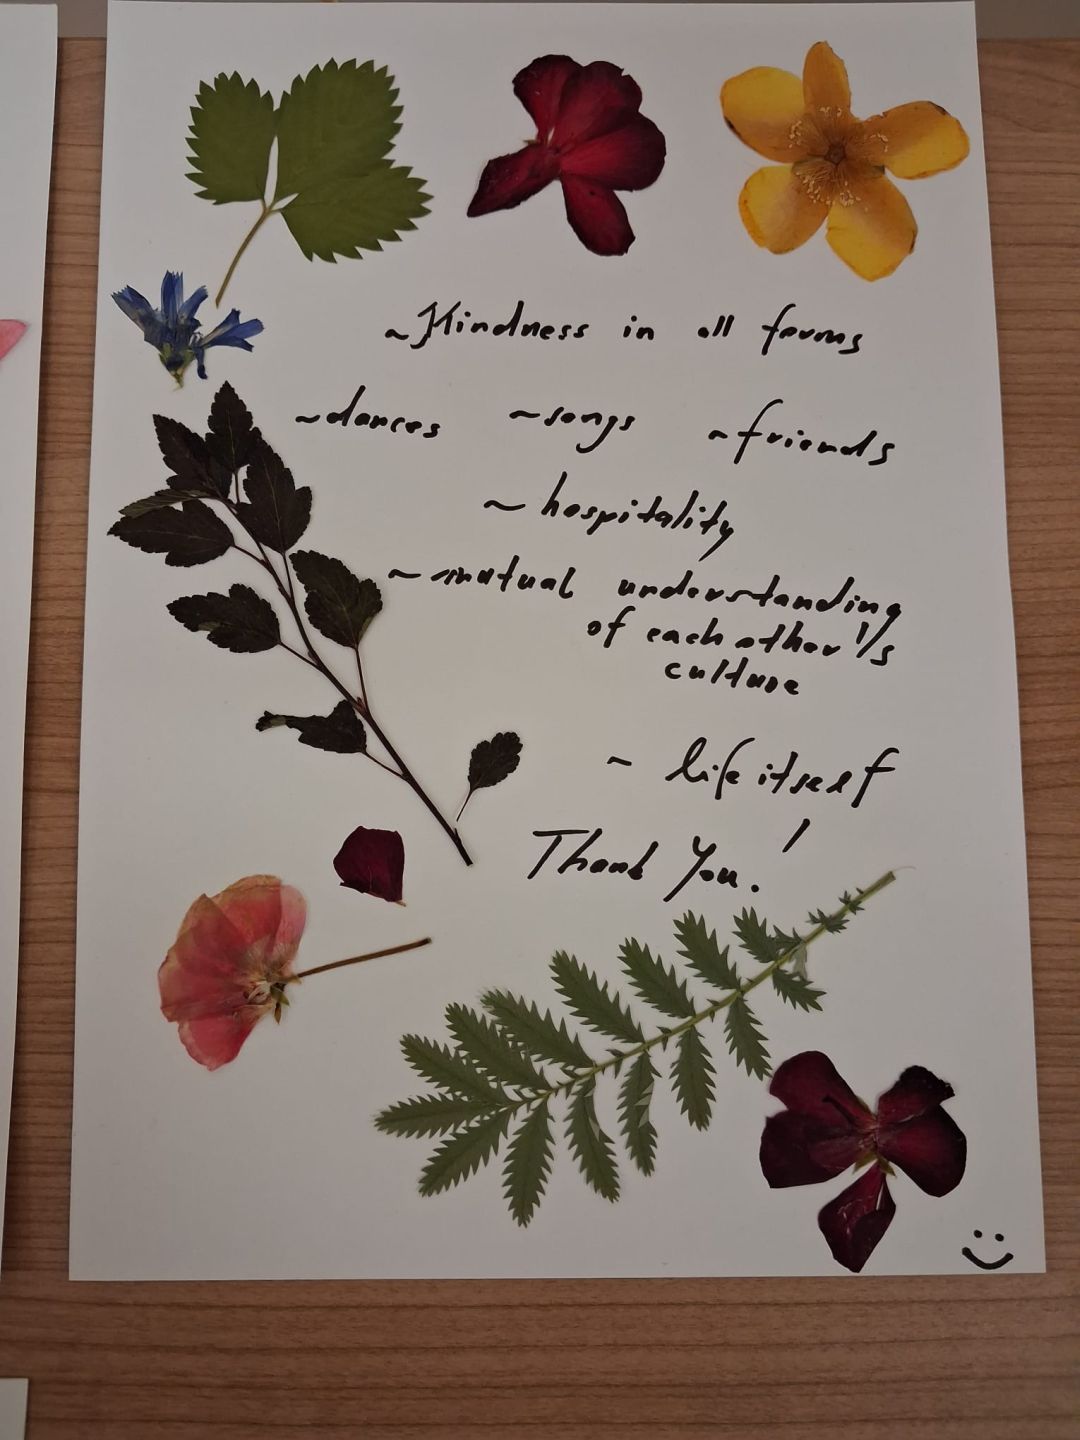 ~Kindness in all forms
~dances ~songs ~friends
~hospitality
~mutual understanding
of each other's
culture
~ life itself
Thank You!